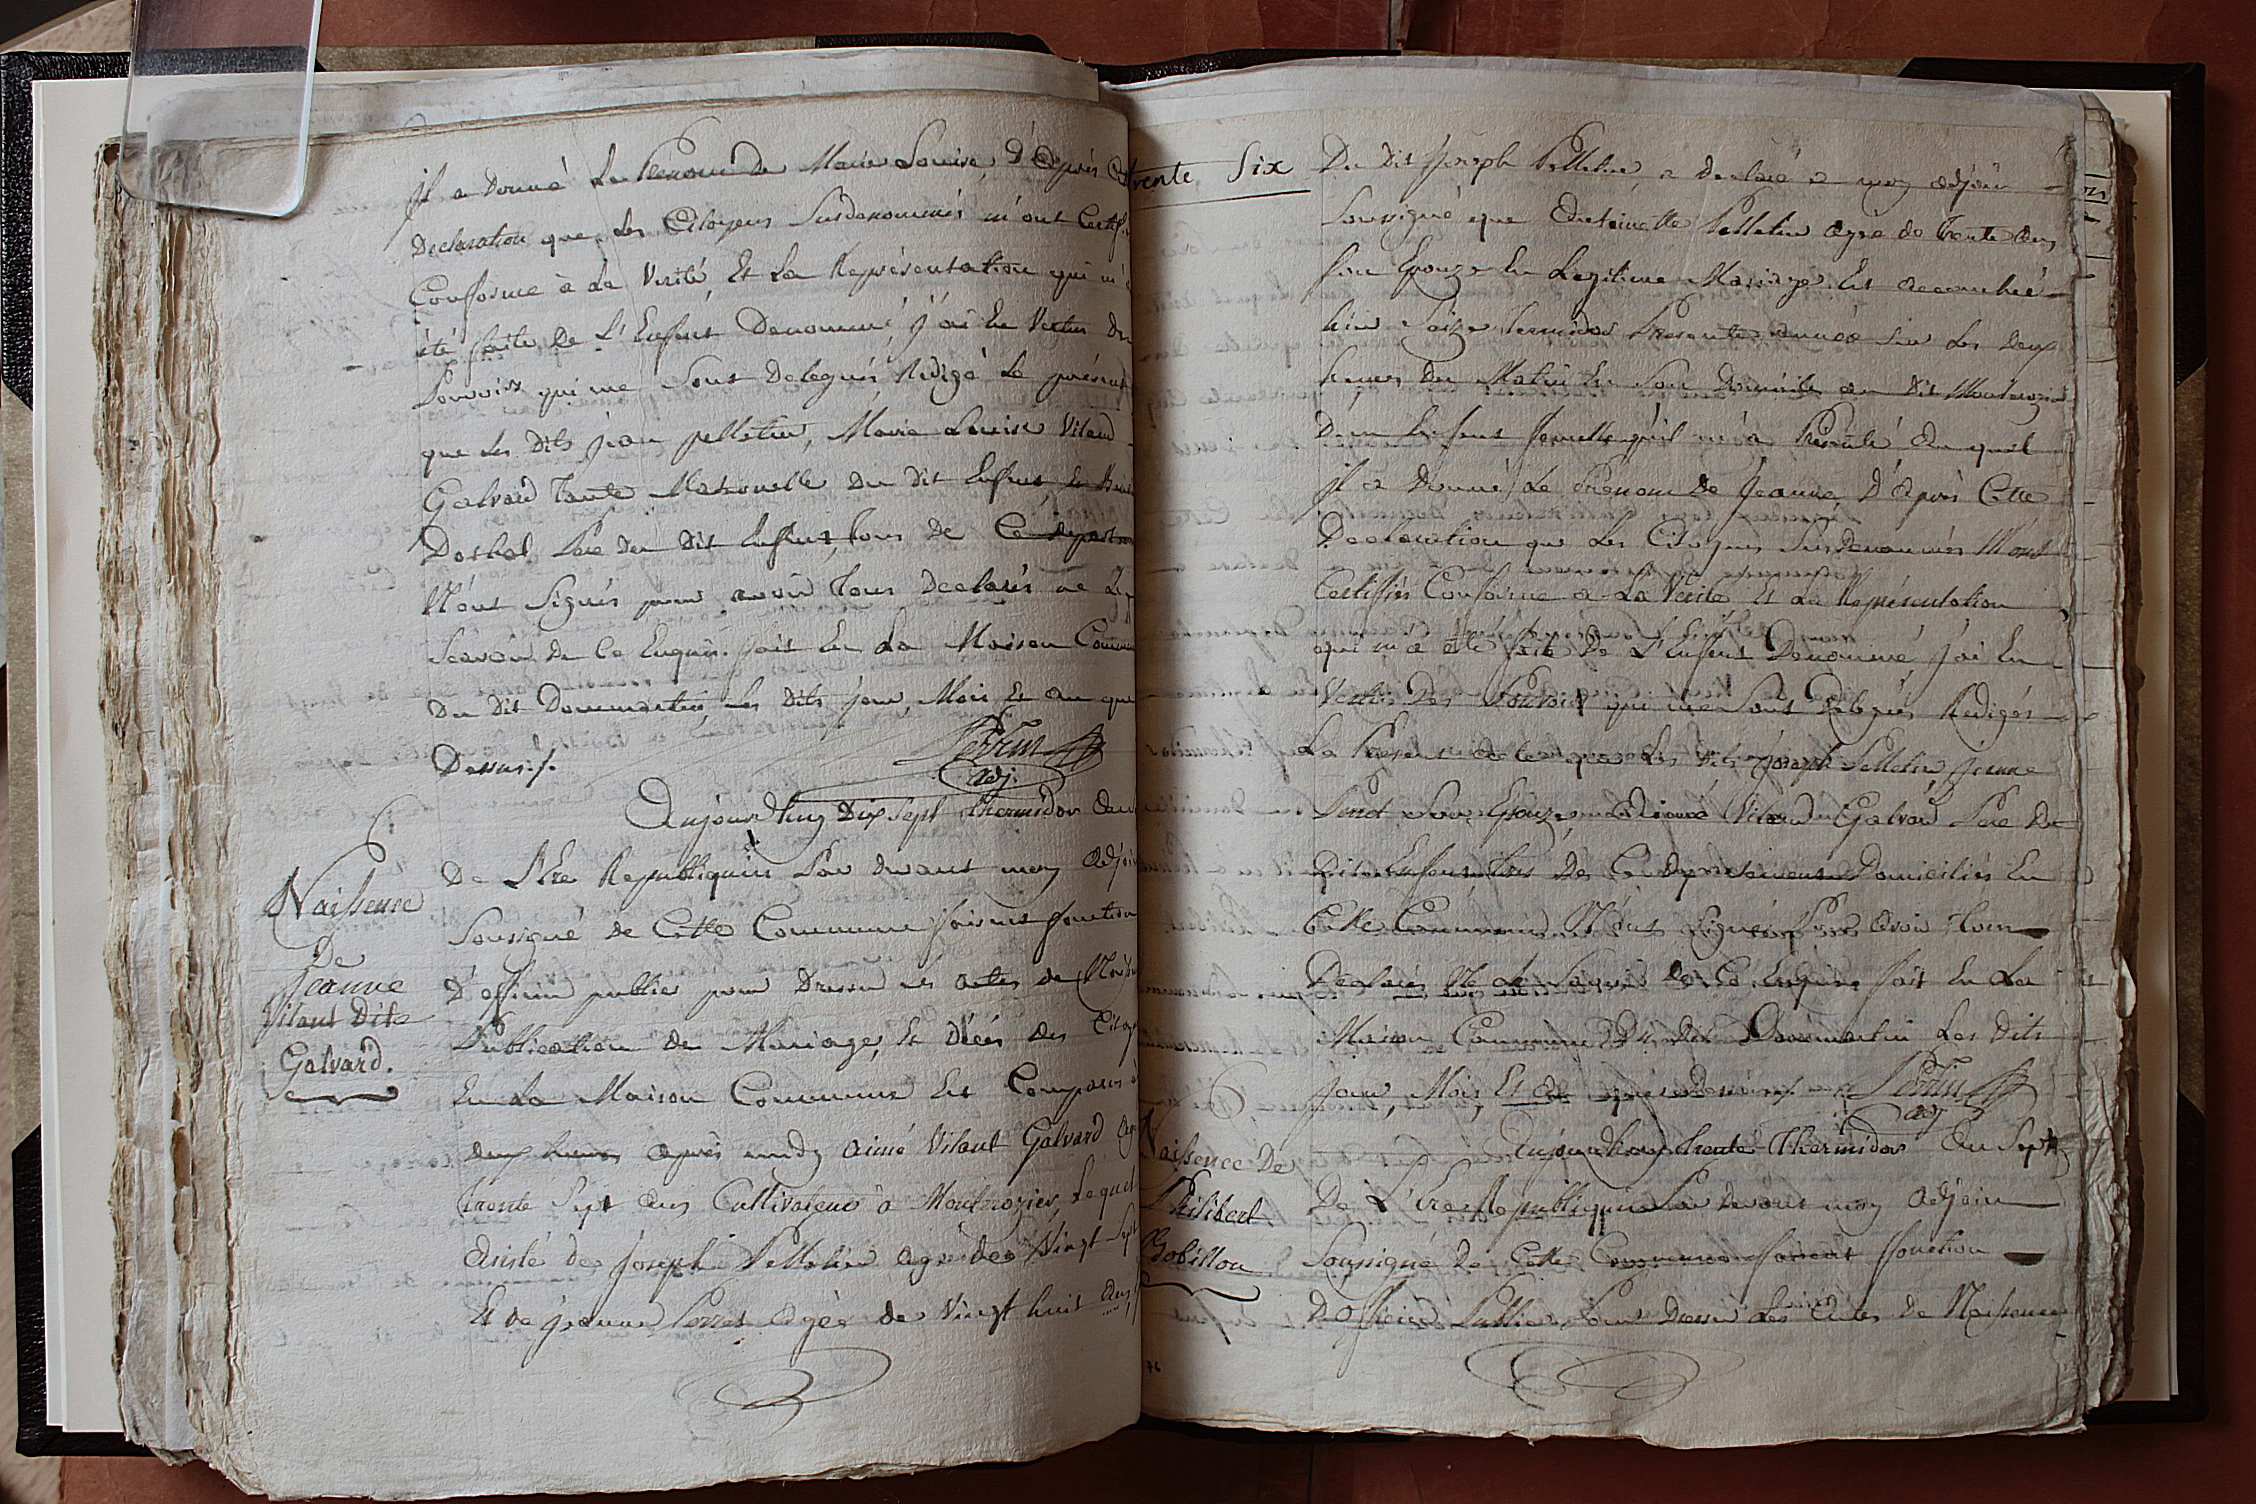 Il a donné Le Prénom de Marie Louise, D'Après
Declaration que Les Citoyens Susdenommés m'ont
Conforme à La Verité, Et La Représentation qui m'
été faite De L'Enfent Denommé j'ai En Vertus
Pouvoirs qui me Sont Delegués Redigé Le présent
que Les Dits jean pelletier, Marie Louise Vitaud
Galvard Tante Maternelle Du Dit Enfent, Et
Pere Du Dit Enfent, tous De Ce
N'ont Signés pour avoir Tous Declarés ne
Scavoir De Ce Enquis. fait En La Maison
Du Dit Dommartin, Les Dits jour, Mois Et an que
Dessus./.
Perrin
adj.
Naissence
De
Jeanne
Vitaut Dite
Galvard.
Aujourd'huy Dix Sept Thermidor
De L'Ere Republiquin Par devant moy
Sousigné de Cette Commune faisent fonction
D'officier publier pour Dresser Les actes de
Publication de Mariage, Et Décés des
En La Maison Commune Est Comparus
deux heures après midy aimé Vitaut Galvard
trente Sept ans Cultivateur à Montrozier, Lequel
Assisté de Joseph Pelletier agé de Vingt Sept
Et de jeanne Perret agée de Vingt huit ans,
trente Six
Du Dit Joseph Pelletier, a declaré a moy adjoin
Soussigné que Antoinette Pelletier agée de trente ans
Son Epouze En Legitime Mariage Est accouchée
hier Saize Termidor Presente année Sur Les deux
heures Du Matin En Son Domicile au Dit Montrozier
D'un Enfent femelle qu'il m'a Presenté Au quel
Il a Donné Le Prénom De Jeanne D'Après Cette
Declaration que Les Citoyens Susdenommés M'ont
Certifiés Conforme a La Verité Et La Représentation
qui m'a été faite De L'Enfent Denommé j'ai En
Vertus Des Pouvoirs qui me Sont Delegués Redigés
Le Présent acte que Les Dits Joseph Pelletier Jeanne
Son Epouze, Aimé Vitaud Galvard Pere Du
Dit Enfent tous De Ce Departement Domiciliés En
Cette Commune N'ont Signés Pour avoir Tous
Declarés Ne Le Savoir De Ce Enquis. fait En La
Maison Commune Du Dit Dommartin Les Dits
Jour, Mois, Et an que dessus ./.
Perrin
adj
Naissence De
Philibert
Gobillon
Aujourdhuy trente Thermidor An Sept
De L'Ere Republiquin Par devant moy Adjoin
Soussigné De Cette Commune faisent fonction
D'officier Publier Pour Dresser Les Actes de Naissence
76